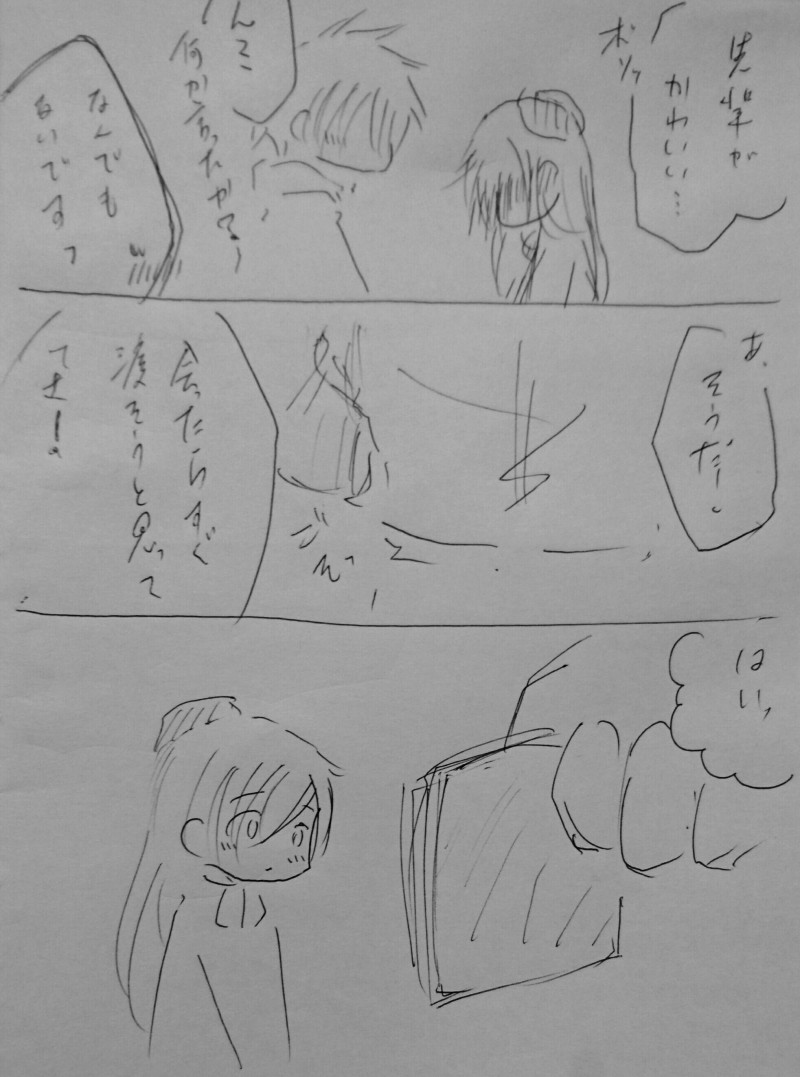 先輩が
かわいい…
ボソッ
ん?
何か言ったかな?
なんでも
ないですっ
あ、
そうだ!
会ったらすぐ
渡そうと思って
てさー。
はいっ